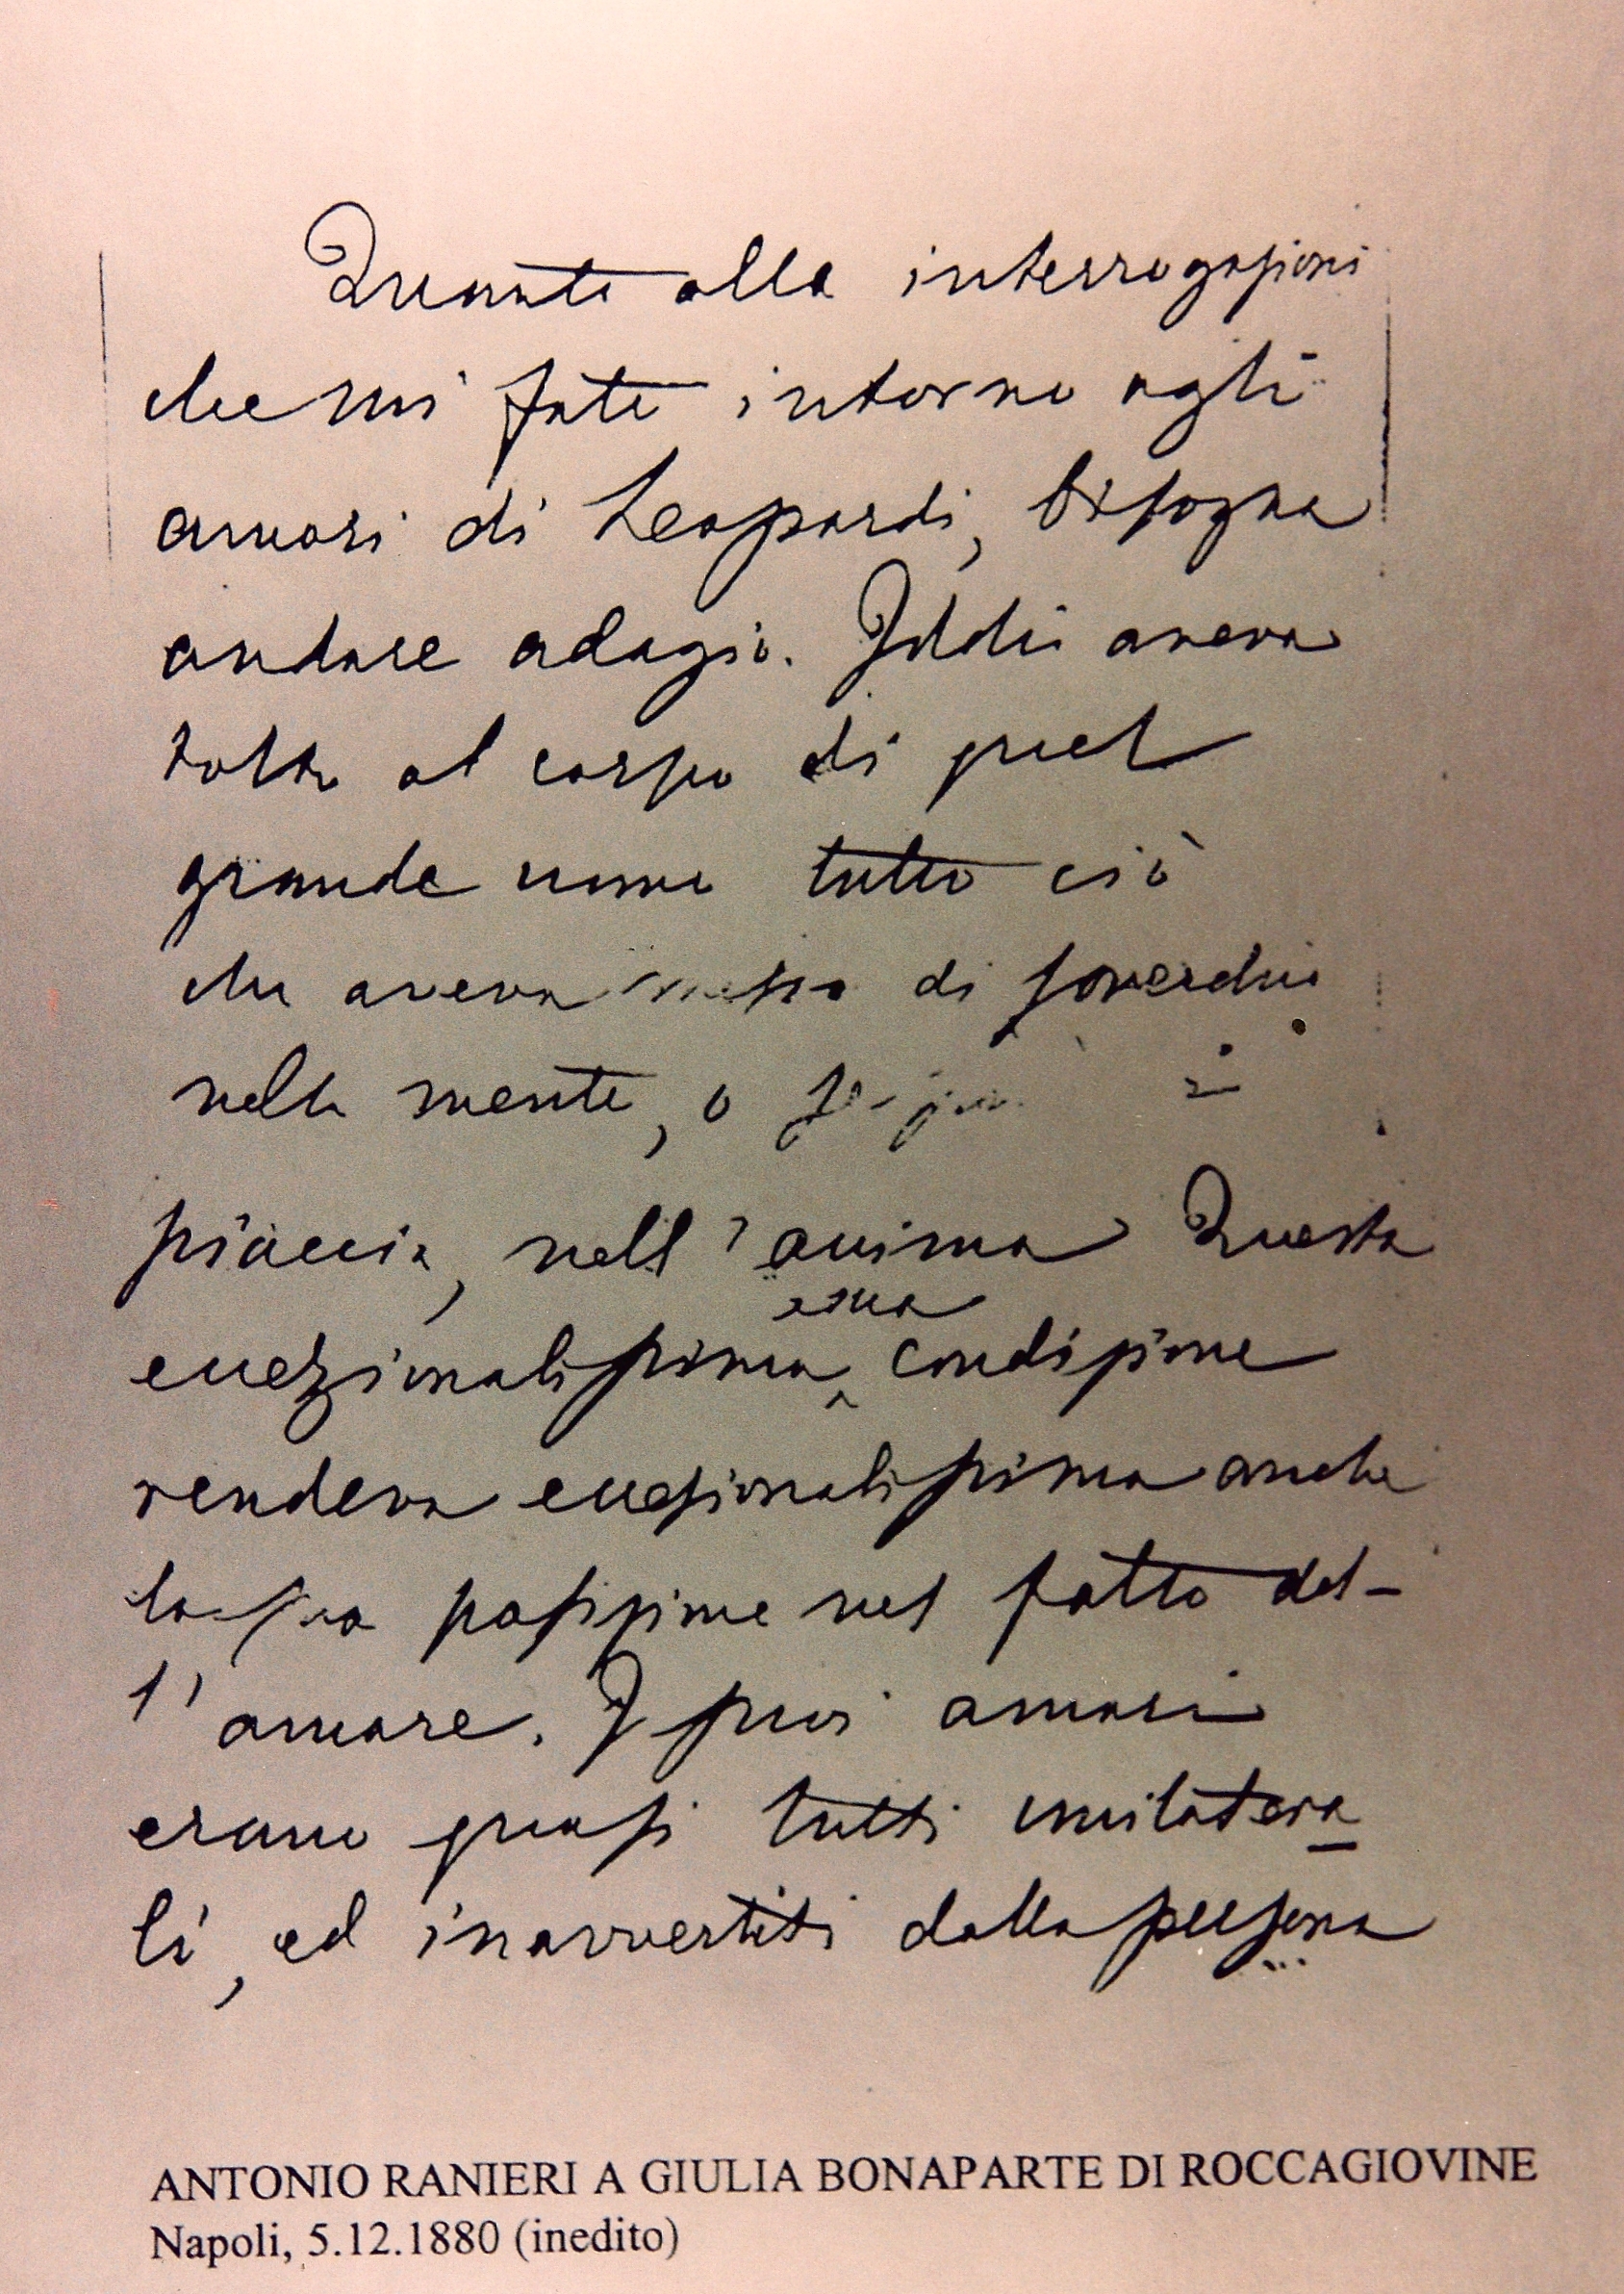 Quanto alle interrogazioni
che mi fate intorno agli
amori di Leopardi, bisogna
andare adagio. Iddio aveva
tolto al corpo di quel
grande uomo tutto ciò
che aveva messo di soverchio
nella mente, o
piaccia, nell'anima Questa
sua
eccezionalissima condizione
rendeva eccezionalissima anche
la sua posizione nel fatto del-
l'amore. I suoi amori
erano quasi tutti unilatera
li, ed inavvertiti dalla persona
ANTONIO RANIERI A GIULIA BONAPARTE DI ROCCAGIOVINE
Napoli, 5.12.1880 (inedito)